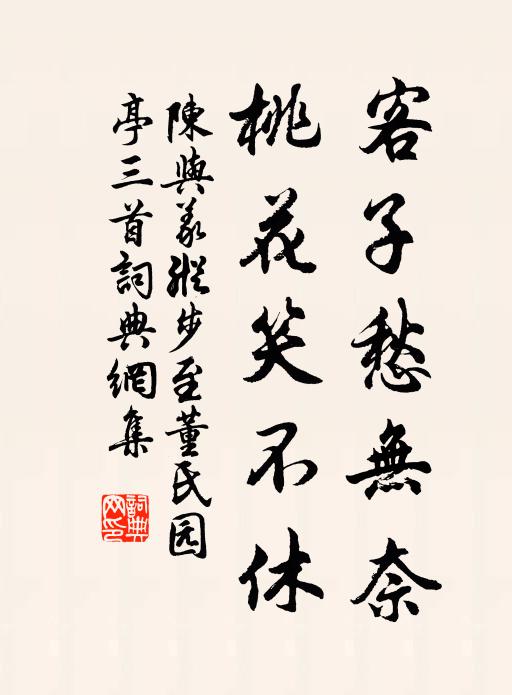 客子愁無奈
桃花笑不休
陳與義縱步至董氏园
亭三首詞典網集
詞典
网印